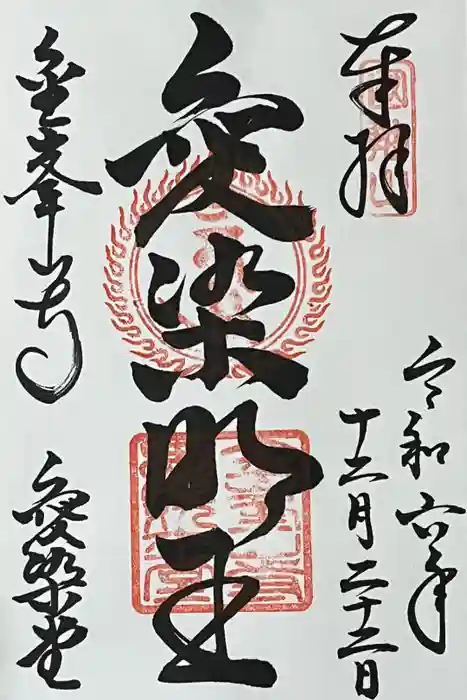 奉拝
令和六年
十二月二十二日
愛染明王
金峯寺
愛染堂